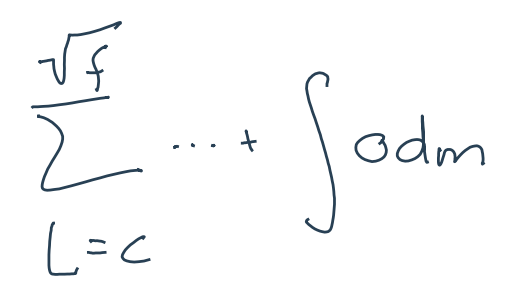 \sum_{L=c}^{\sqrt{f}} \cdots + \int o d m